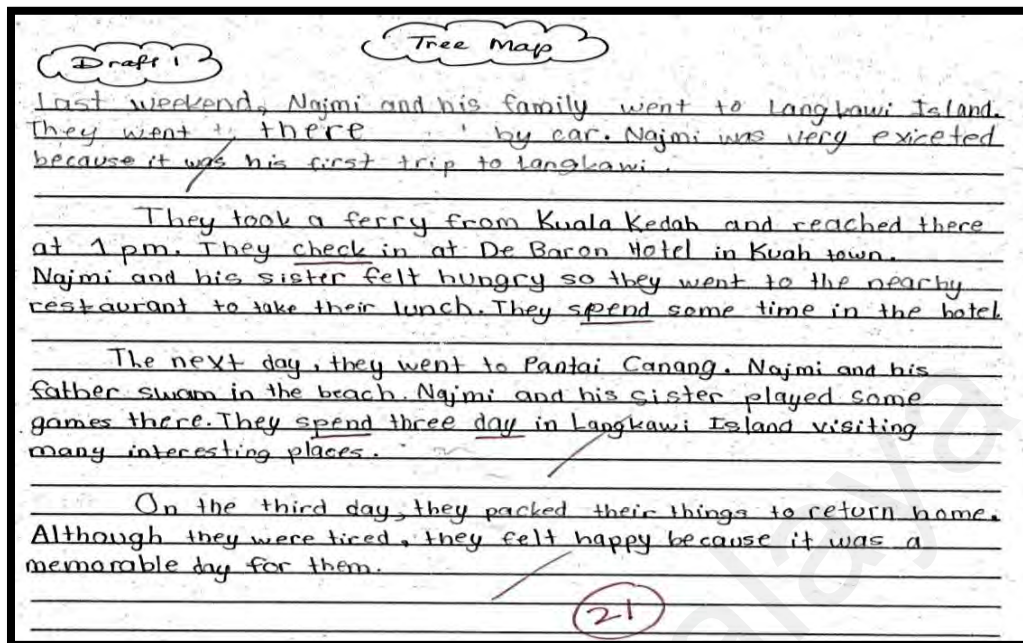 Tree Map
Draft 1
Last weekend, Najmi and his family went to Langkawi Island.
They went to there by car. Najmi was very exiceted
because it was his first trip to Langkawi.
They took a ferry from Kuala Kedah and reached there
at 1 pm. They check in at De Baron Hotel in Kuah town.
Najmi and his sister felt hungry so they went to the nearby
restaurant to take their lunch. They spend some time in the hotel.
The next day, they went to Pantai Canang. Najmi and his
father swam in the beach. Najmi and his sister played some
games there. They spend three day in Langkawi Island visiting
many interesting places.
On the third day, they packed their things to return home.
Although they were tired, they felt happy because it was a
memorable day for them.
21
alaya